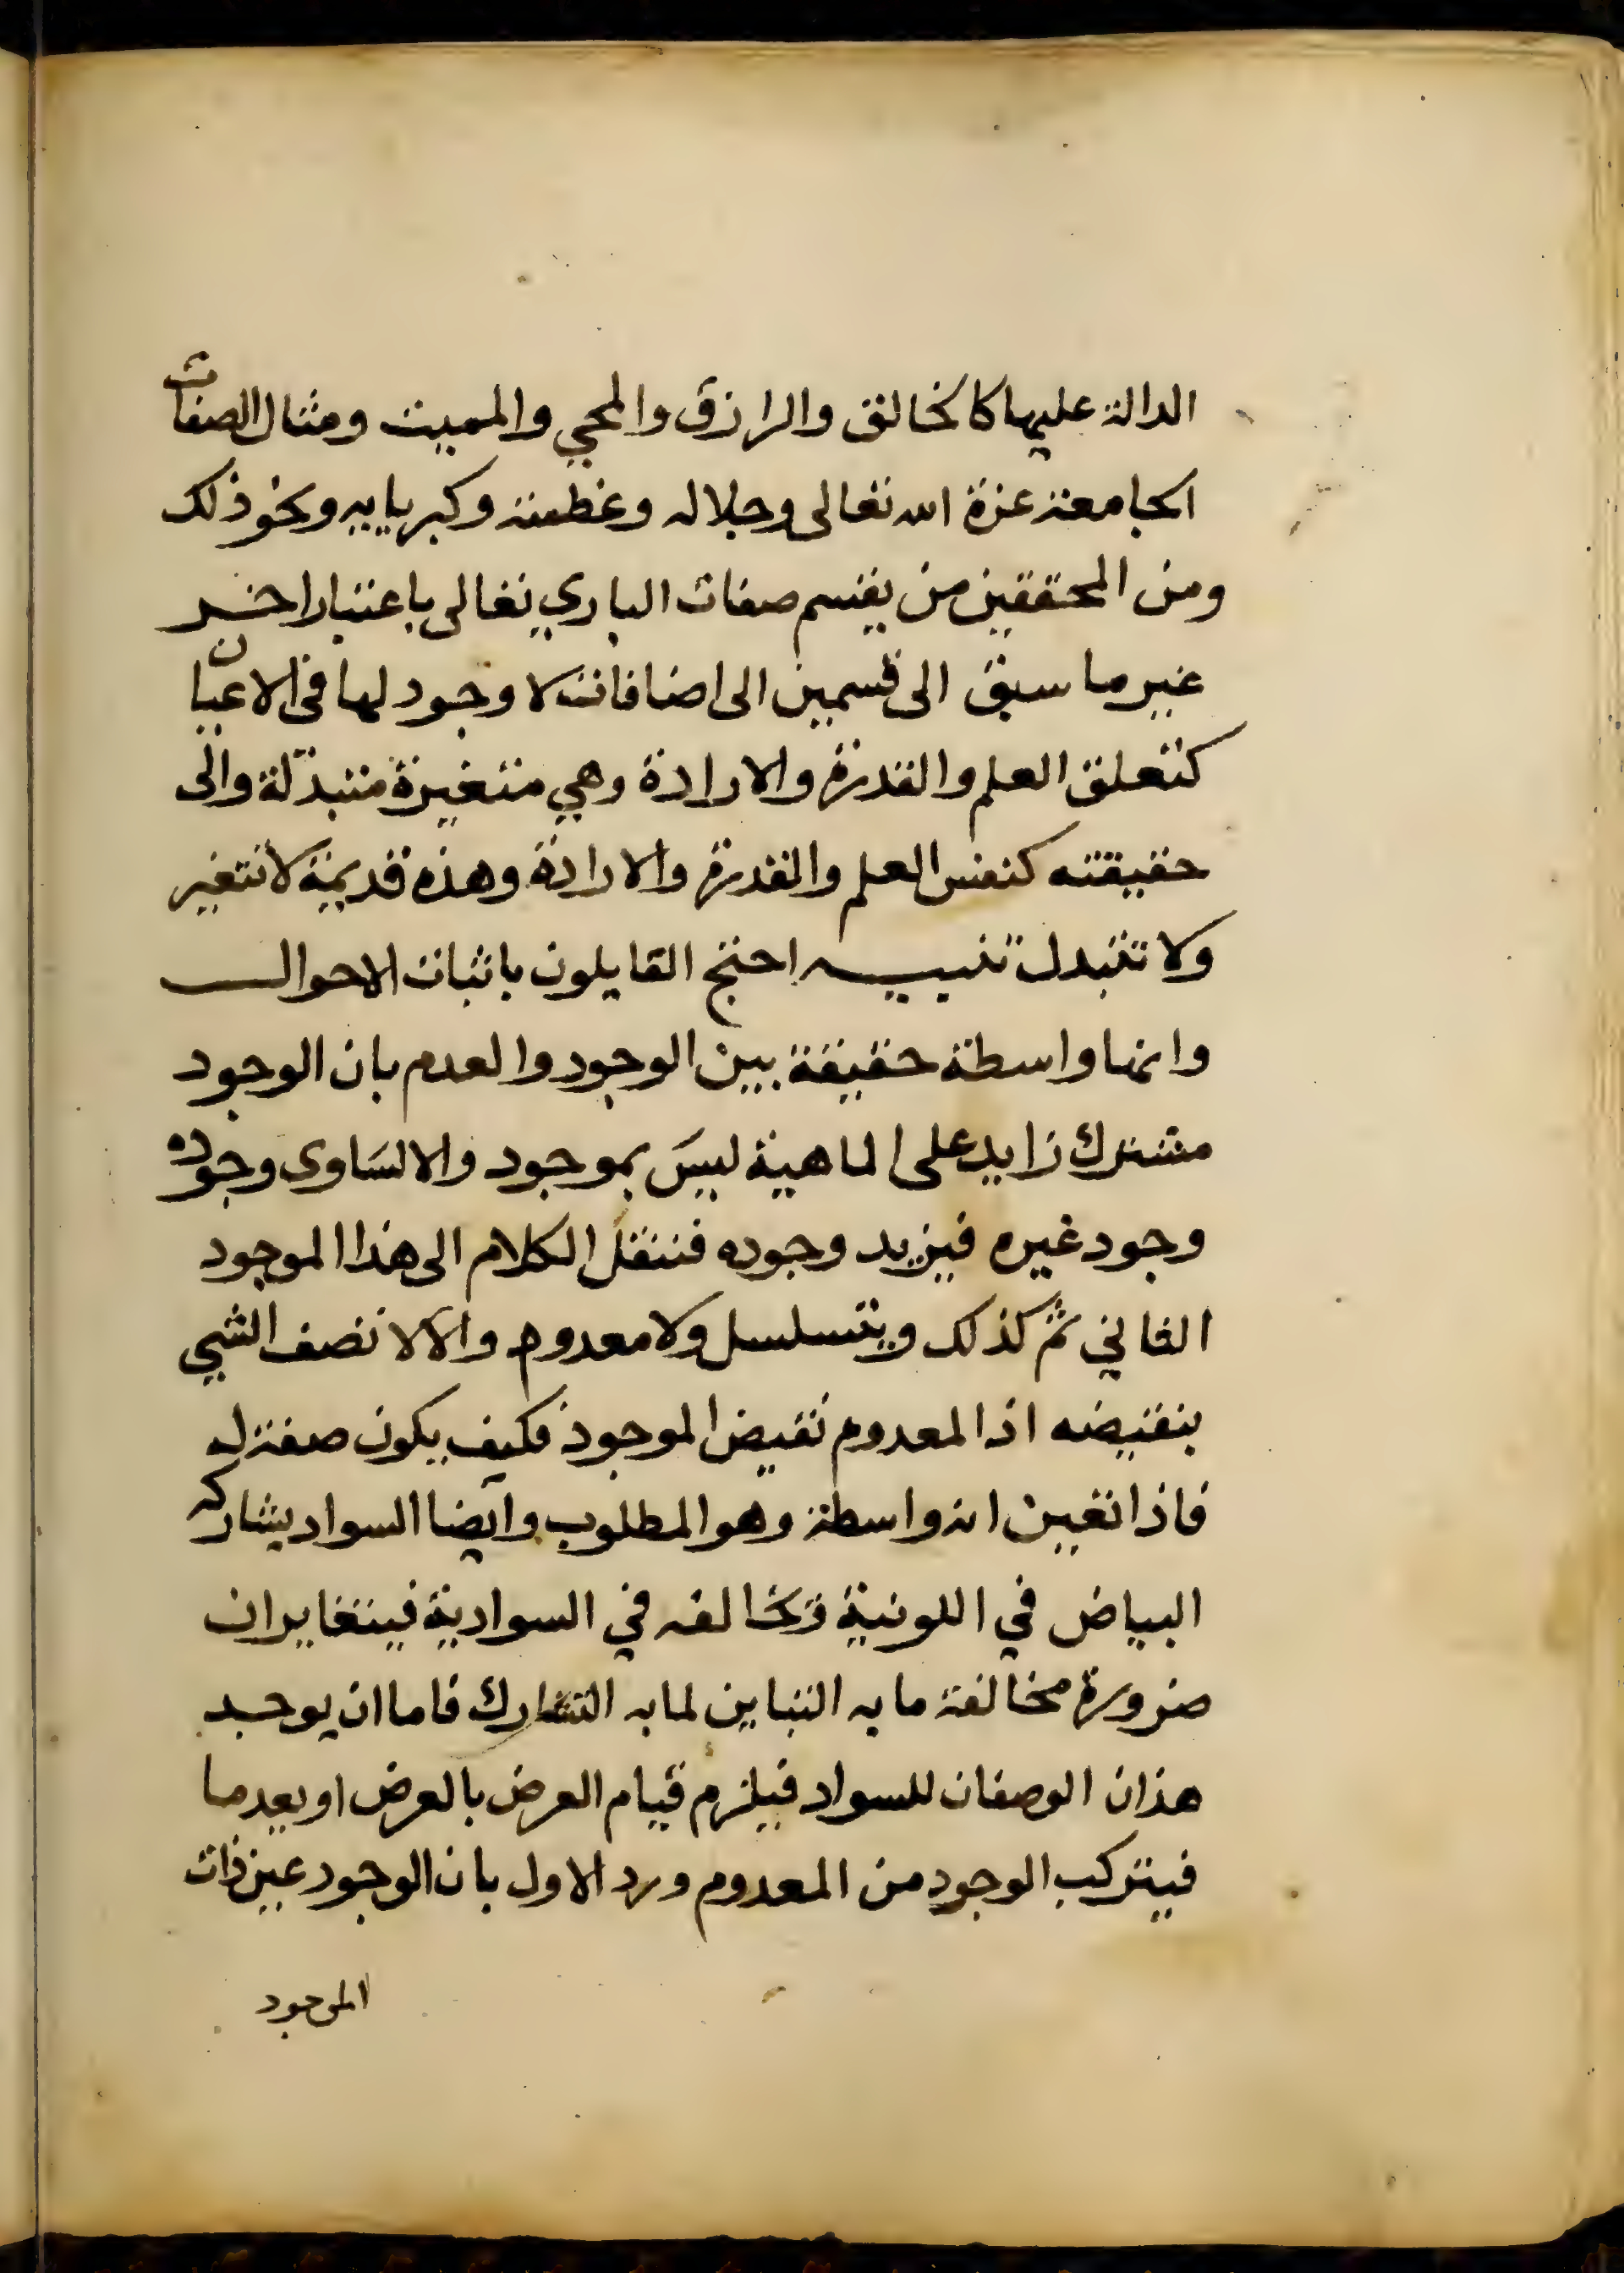 الدالة عليها كالخالق والرازق والمحي والمميت ومثال الصفات
الجامعة عزة الله تعالى وجلاله وعظمته وكبريايه ونحو ذلك
ومن المحققين من يقسم صفات الباري تعالى باعتبار اخر
غير ما سبق الى قسمين الى اضافات لا وجود لها في الاعيان
كتعلق العلم والقدرة والارادة وهي متغيرة متبدلة والى
حقيقته كنفس العلم والقدرة والارادة وهذه قديمة لا تتغير
ولا تتبدل تنبيه احتج القايلون باثبات الاحوال
وانها واسطة حقيقة بين الوجود والعدم بان الوجود
مشترك زايد على الماهية ليس بموجود والا لساوى وجوده
وجود غيره فيزيد وجوده فننقل الكلام الى هذا الموجود
الثاني ثم كذلك ويتسلسل ولا معدوم والا لا تصف الشي
بنقيضه اذ المعدوم نقيض الموجود فكيف يكون صفة له
فاذا تعين انه واسطة وهو المطلوب وايضا السواد يشاركه
البياض في اللونية وتخالفه في السوادية فيتغايران
ضرورة مخالفة ما به التباين لما به التشارك فاما ان يوجد
هذان الوصفان للسواد فيلزم قيام العرض بالعرض او يعدما
فيتركب الوجود من المعدوم ورد الاول بان الوجود عين ذات
الموجود